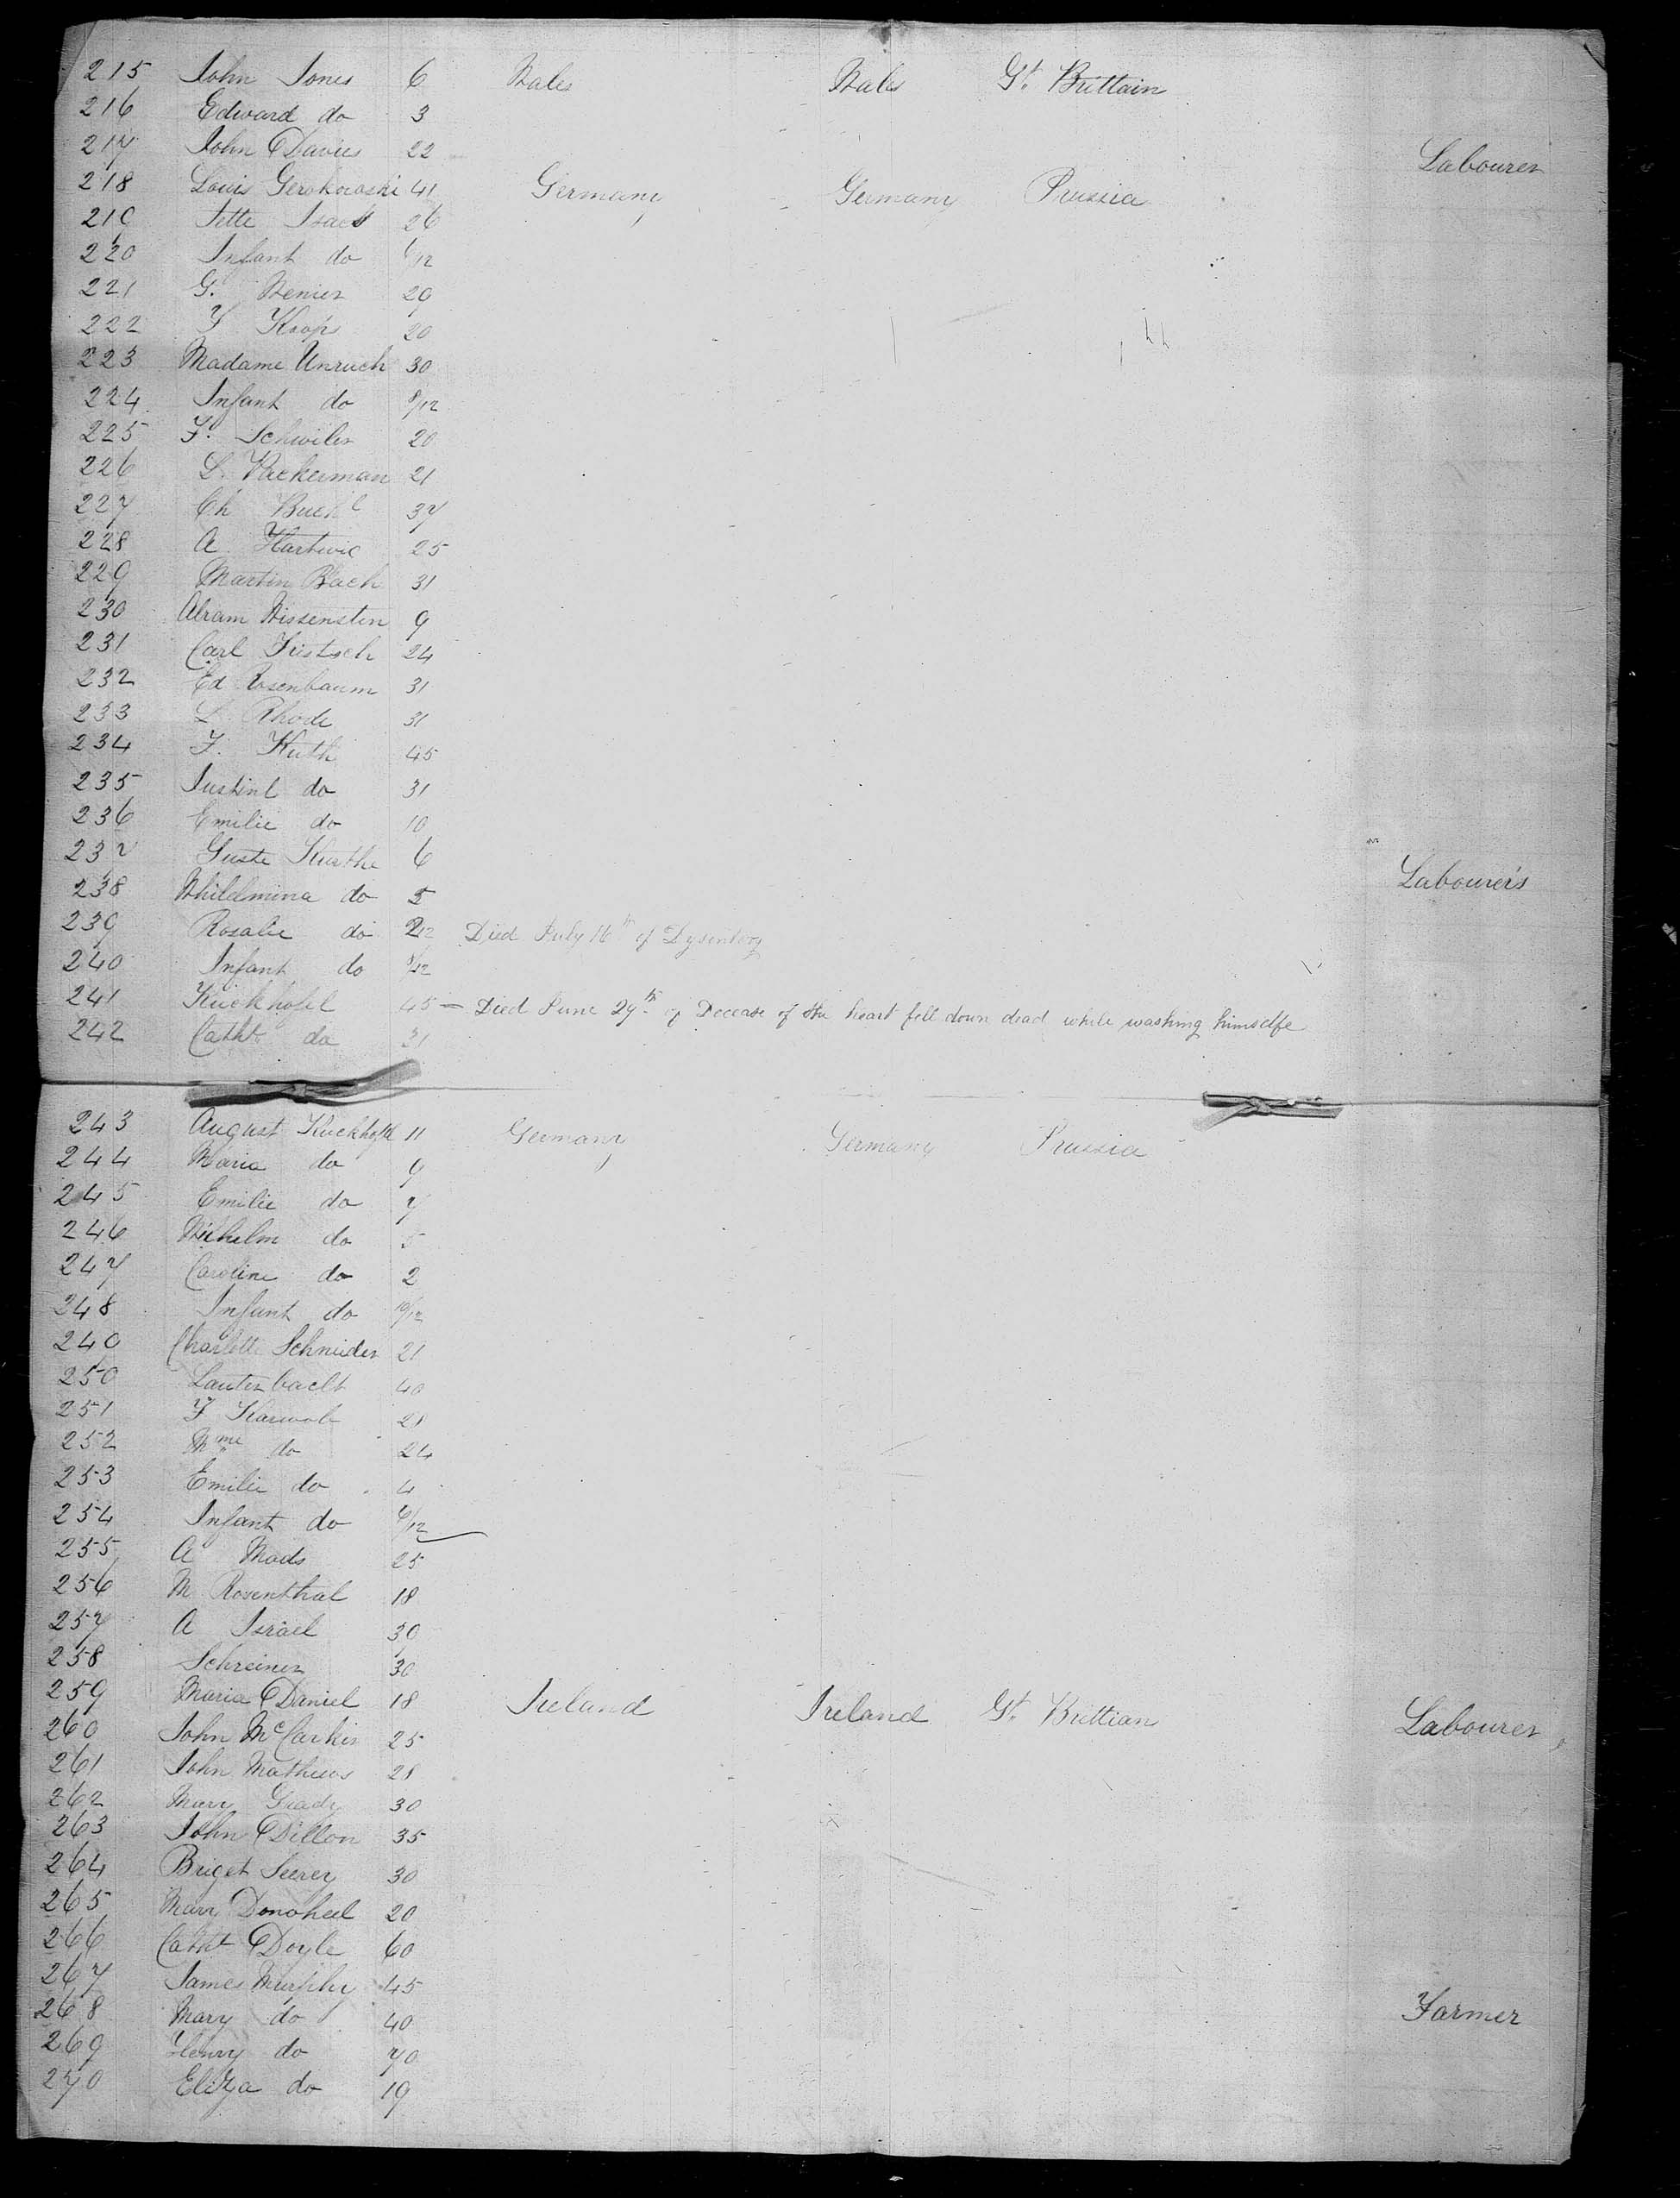 215 John Jones 6 Wales Wales Gt. Brittain
216 Edward do 3
217 John Davies 22 Labourer
218 Louis Gerskowski 41 Germany Germany Prussia
219 Jette Isaac 26
220 Infant do 6/12
221 G. Wenier 29
222 Koops 20
223 Madame Unruch 30
224 Infant do 8/12
225 F. Schwiler 20
226 L. Packerman 21
227 Ch 37
228 A Hartwic 25
229 Martin Bach 31
230 Abram Wissensten 9
231 Carl Fristsch 24
232 Ed Rosenbaum 31
233 L. Rhode 31
234 F. Kuth 45
235 Justine do 31
236 Emilie do 10
237 Guste Kurthe 6 Labourers
238 Whilelmina do 5
239 Rosalie do Died July 16th of Dysentery
240 Infant do 8/12
241 Kuckhofel 45 — Died June 29th of Decease of the heart fell down dead while washing himselfe
242 Catht do 31
243 August Kuckhofel 11 Germany Germany Prussia
244 Maria do 9
245 Emilie do 7
246 Wilhelm do 5
247 Caroline do 2
248 Infant do 10/12
249 Charlotte Schneider 21
250 Lautenbacht 40
251 F 21
252 Mme do 24
253 Emilie do 4
254 Infant do 6/12
255 A Mads 25
256 M Rosenthal 18
257 A Israel 30
258 Schreiner 30
259 Maria Daniel 18 Ireland Ireland Gt. Brittian
260 John McCarkin 25 Labourer
261 John Mathews 28
262 Mary Grady 30
263 John Dillon 35
264 Briget Seerey 30
265 Mary Donoheel 20
266 Catht Doyle 60
267 James Murphy 45
268 Mary do 40 Farmer
269 Henry do 70
270 Eliza do 19